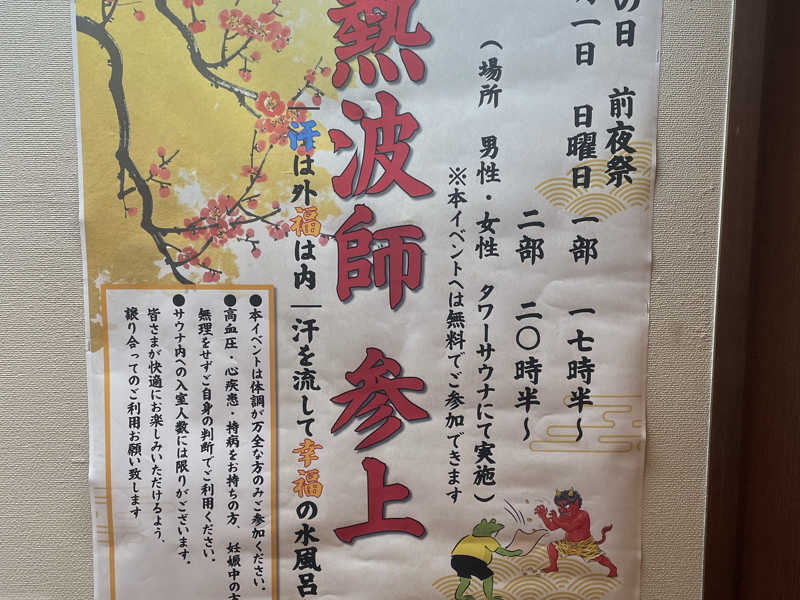 の日 前夜祭
月一日 日曜日 一部 一七時半〜
二部 二〇時半〜
(場所 男性・女性 タワーサウナにて実施)
※本イベントへは無料でご参加できます
熱波師 参上
汗は外福は内 汗を流して幸福の水風呂
●本イベントは体調が万全な方のみご参加ください。
●高血圧・心疾患・持病をお持ちの方、妊娠中の方
無理をせずご自身の判断でご利用ください。
●サウナ内への入室人数には限りがございます。
皆さまが快適にお楽しみいただけるよう、
譲り合ってのご利用お願い致します